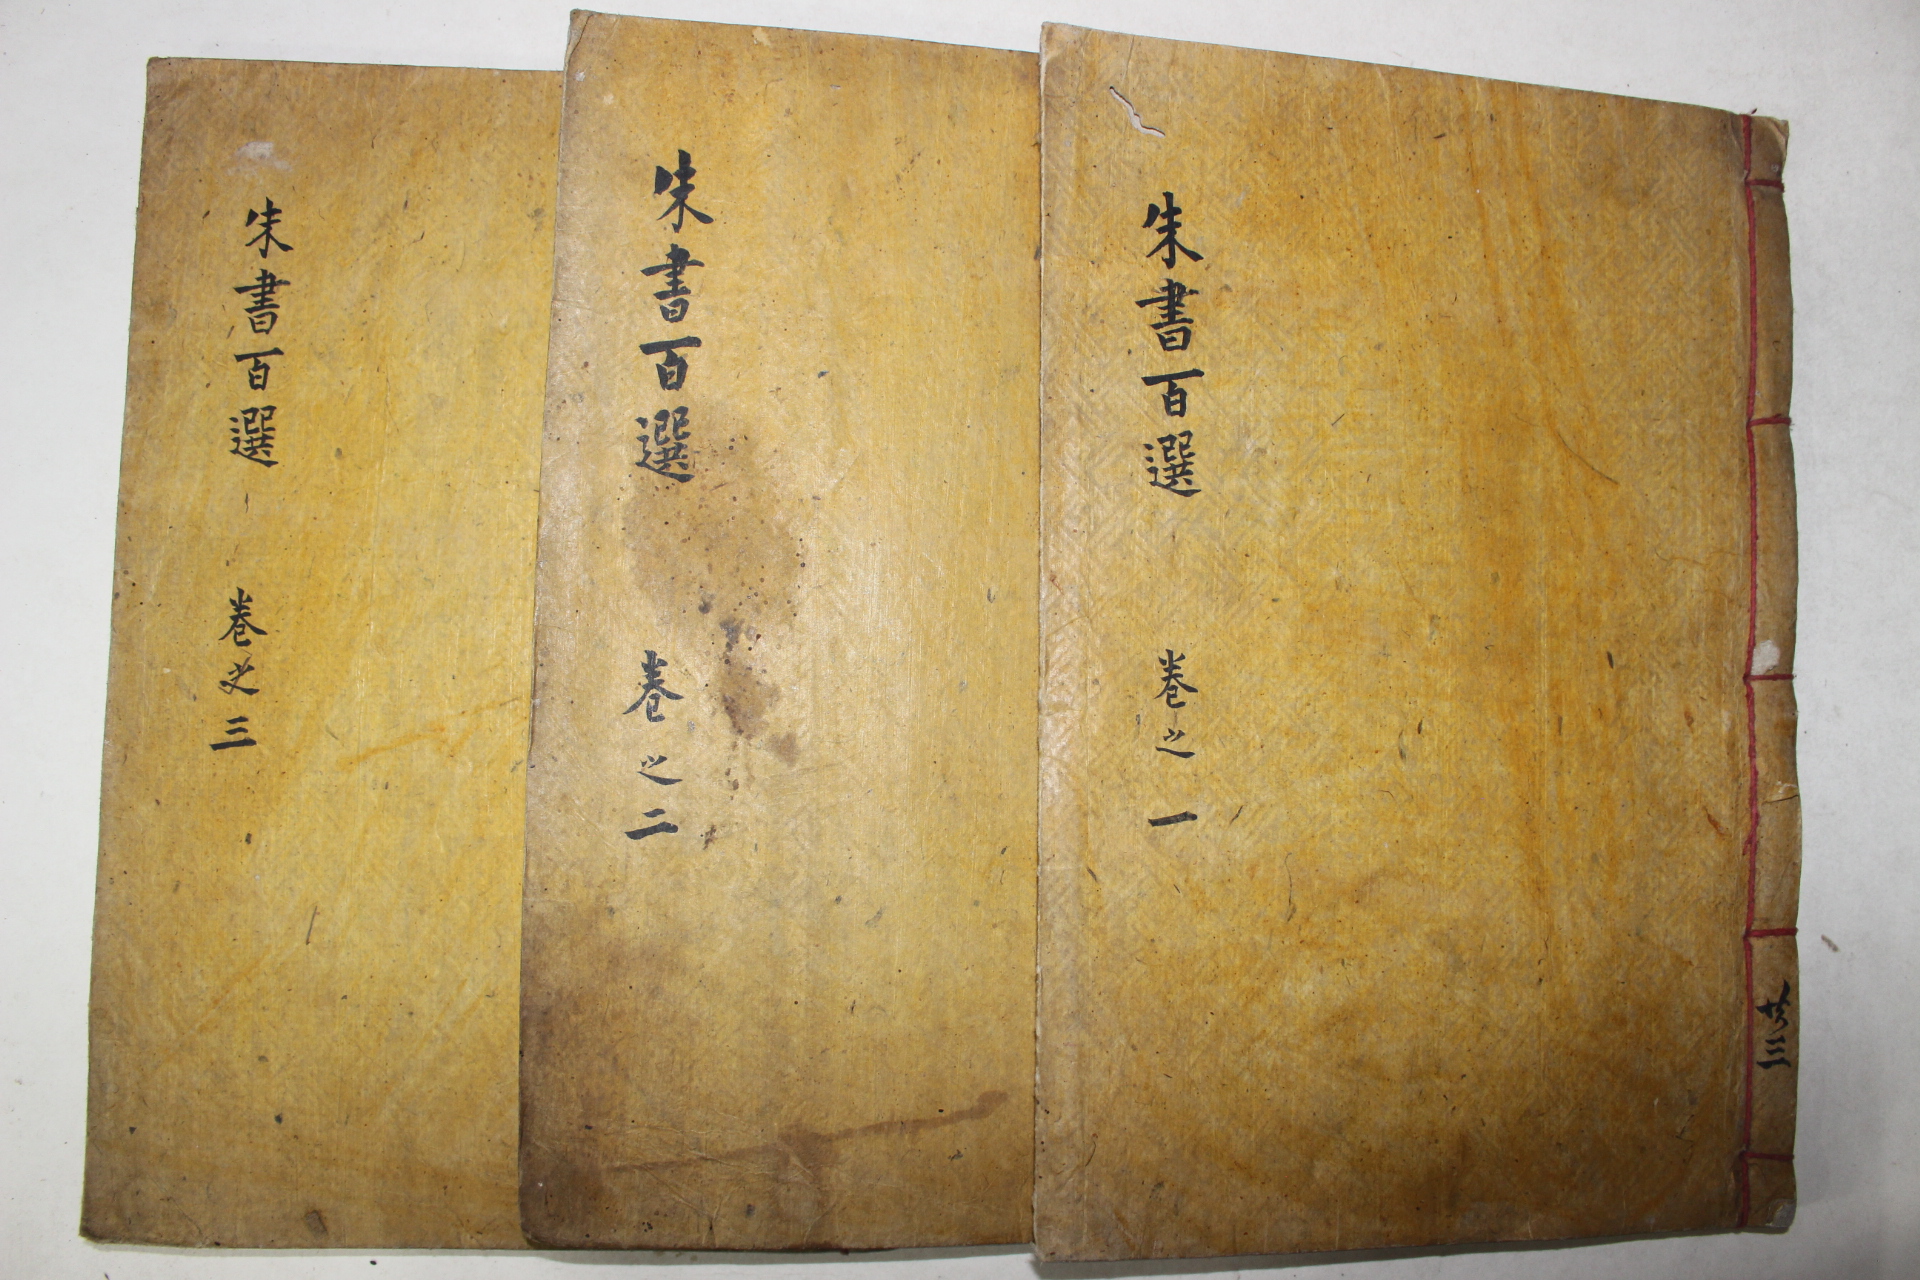 朱書百選 卷之一
共三
朱書百選 卷之二
朱書百選 卷之三